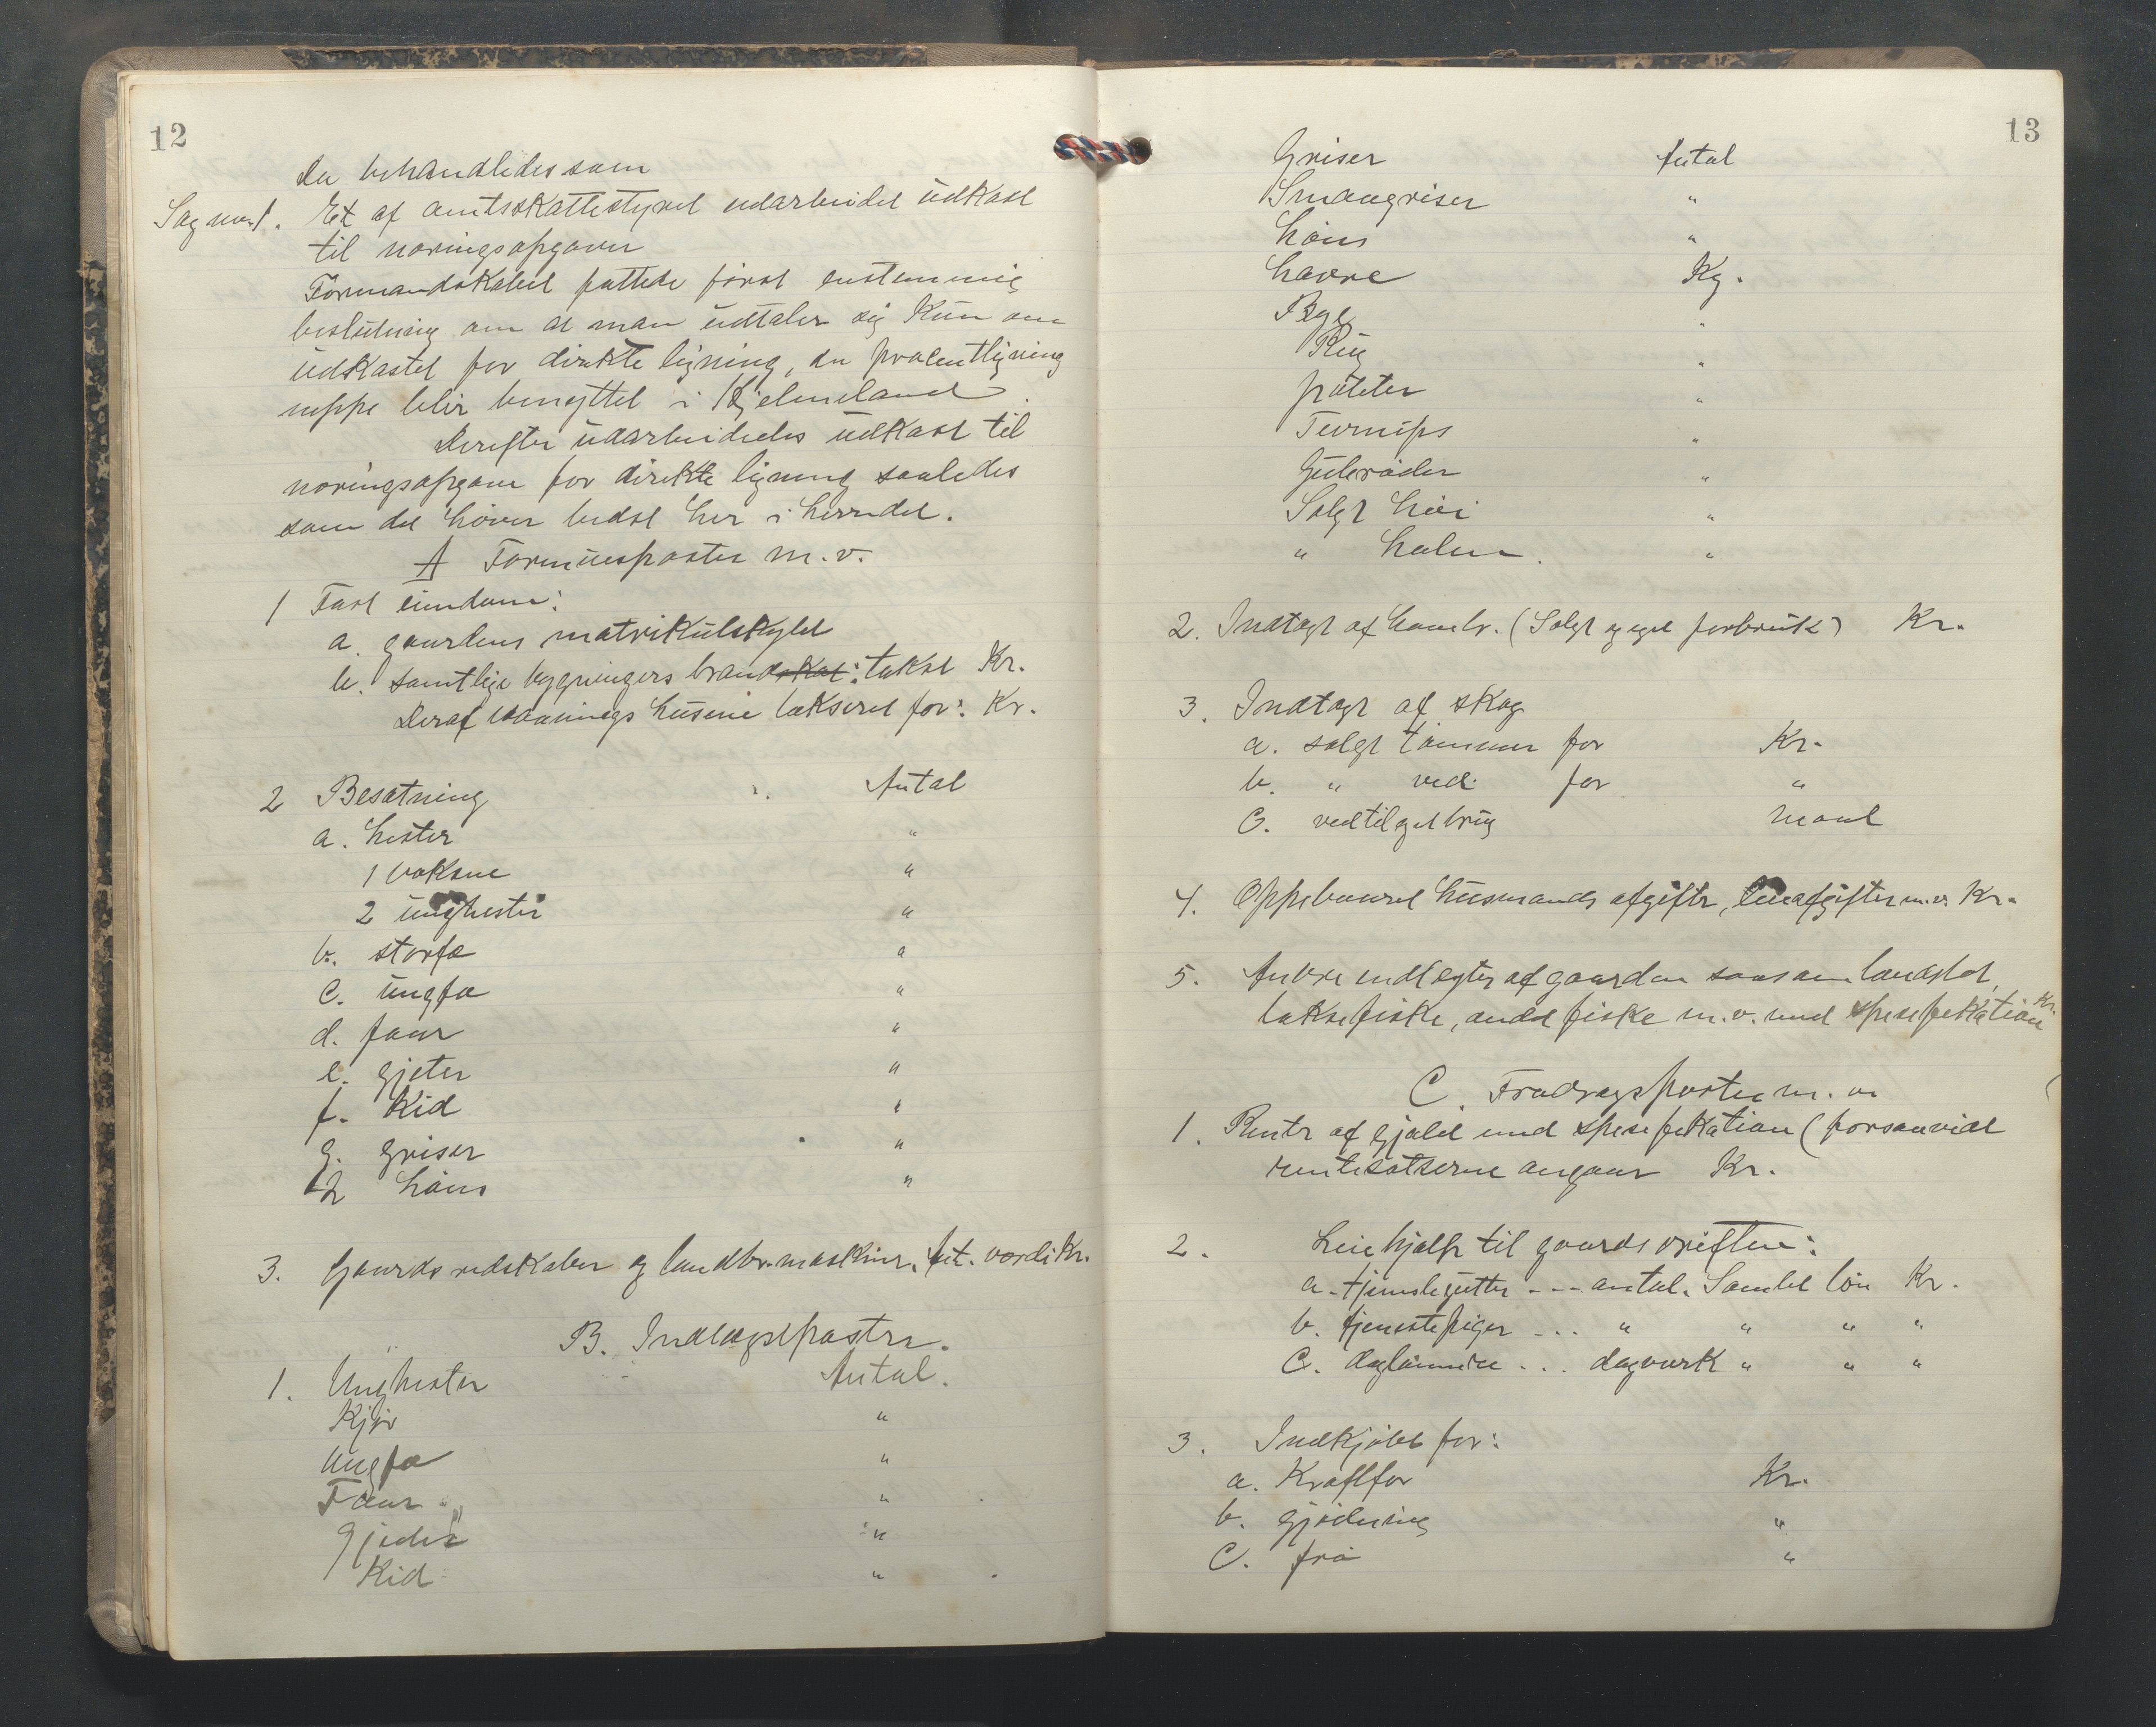 12
Der behandledes som
Sag nr. 1. Et af amtsskattestyret udarbeidet udkast
til næringsopgaver
Formandskabet fattede først enstemmig
beslutning om at man udtaler sig kun om
udkastet for direkte ligning, da procentligning
neppe blir benyttet i Hjelmeland.
Derefter udarbeidedes udkast til
næringsopgave for direkte ligning saaledes
som det høver bedst her i herredet.
A Formuesposter m.v.
1 Fast eiendom:
a. gaardens matrikulskyld
b. samtlige bygningers brandskat: takst Kr.
Deraf vaaningshusene takseret for: Kr.
2 Besætning Antal
a. hester "
1 voksne "
2 unghester "
b. storfæ "
c. ungfæ "
d. faar "
e. gjeter "
f. kid "
g. griser "
h høns "
3. Gaardsredskaber og landbr.maskiner, ant. værdi Kr.
B. Indtægtsposter.
1. Unghester Antal.
Kjør "
Ungfæ "
Faar "
Gjeder "
Kid "
13
Griser Antal
Smaagriser "
Høns "
Havre Kg.
Byg "
Rug "
poteter "
Turnips "
Gulerøder "
Solgt høi "
" halm. "
2. Indtægt af havebr. (Solgt og eget forbruk) Kr.
3. Indtægt af skog
a. solgt tømmer for Kr.
b. " ved for "
c. ved til eget brug maal
4. Oppebaaret husmandsafgifter, leieafgifter m.v. Kr.
5. Andre indtægter af gaarden saasom landslot,
laksefiske, andet fiske m.v. med spesefikation Kr.
C. Fradragsposter m.v.
1. Renter af gjæld med spesefikation (forsaavidt
rentesatserne angaar Kr.
2. Leiehjælp til gaardsdriften:
a. tjenstegutter --- antal. Samlet løn Kr.
b. tjenestepiger ... " " " "
c. daglønnere ... dagverk " " "
3. Indkjøbt for:
a. Kraftfor Kr.
b. gjødning "
c. frø "